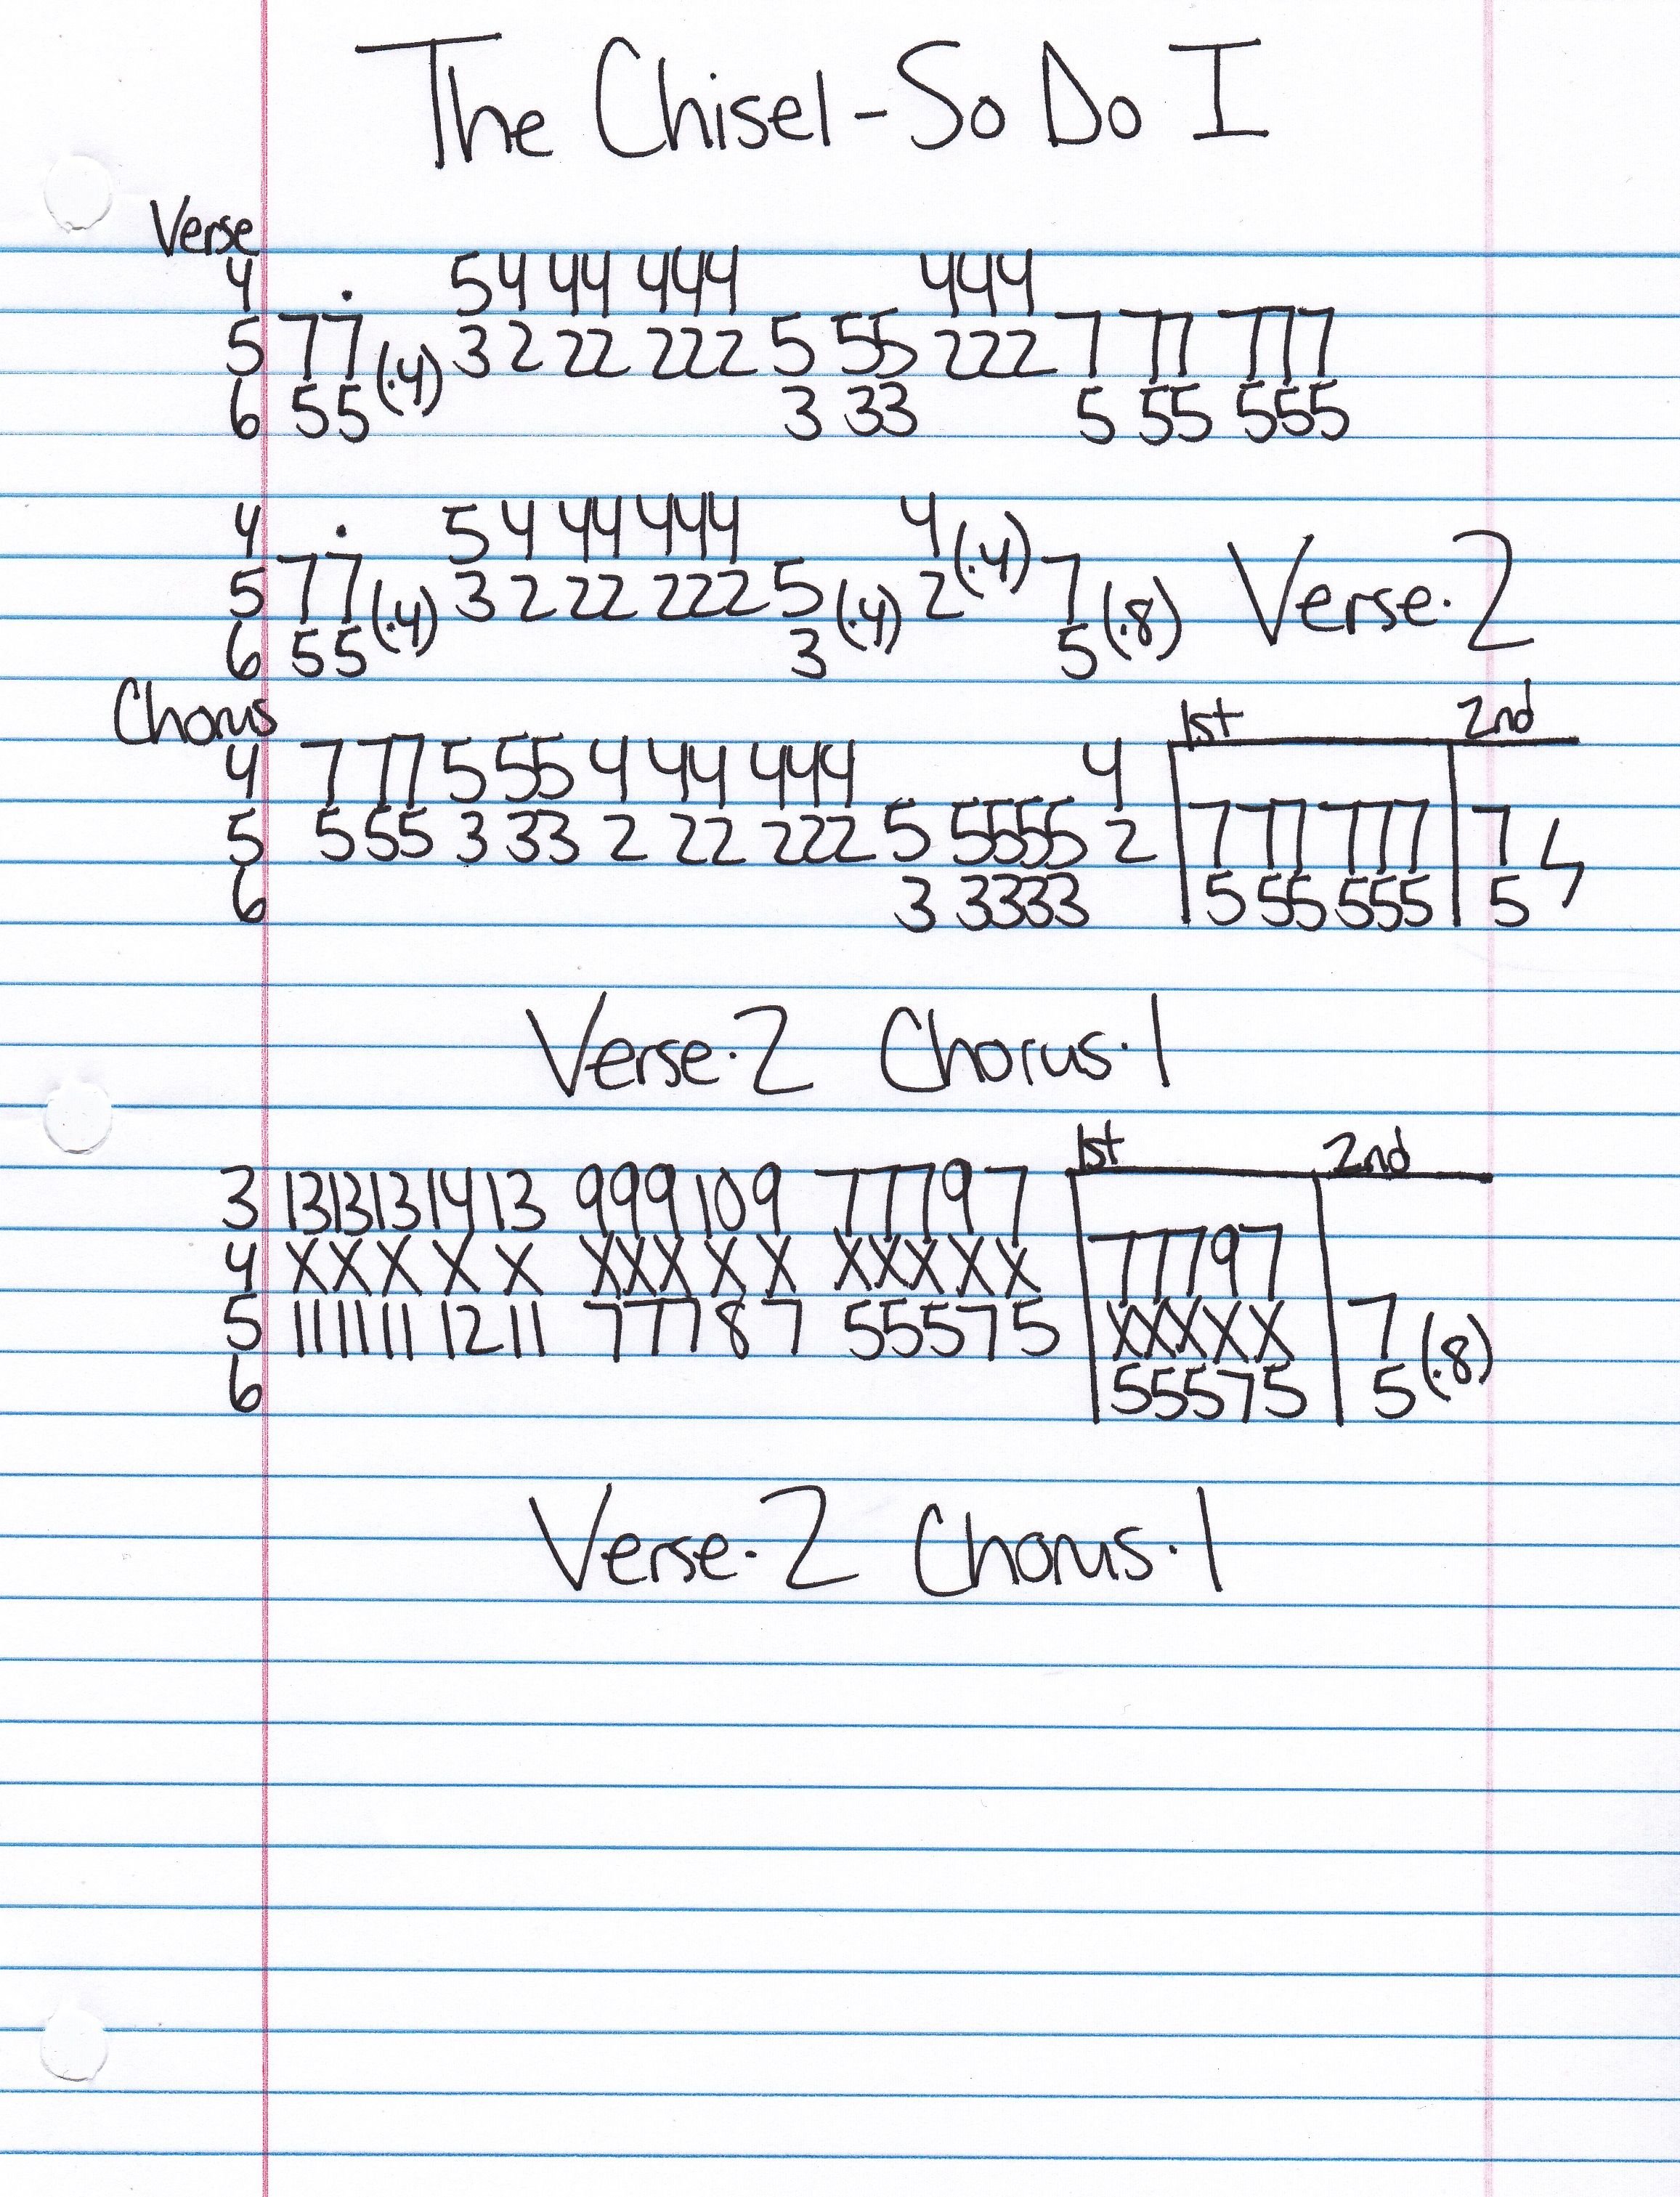 The Chisel - So Do I
Verse
4 . 54 44 444 444
5 77 (.4) 32 22 222 5 555 222 7 77 777
6 55 3 33 5 55 555
4 . 54 44 444 4 (.4)
5 77 (.4) 32 22 222 5 (.4) 2 7 (.8) Verse·2
6 55 3 5
Chorus 1st 2nd
4 7 77 5 55 4 44 444 4
5 5 55 3 33 2 22 222 5 5555 2 7 77 777 7
6 3 3333 5 55 555 5
Verse·2 Chorus·1
1st 2nd
3 13 13 13 14 13 9 9 9 10 9 7 7 7 9 7
4 X X X X X X X X X X X X X X X 7 7 7 9 7
5 11 11 11 12 11 7 7 7 8 7 5 5 5 7 5 X X X X X 7 (.8)
6 5 5 5 7 5 5
Verse·2 Chorus·1